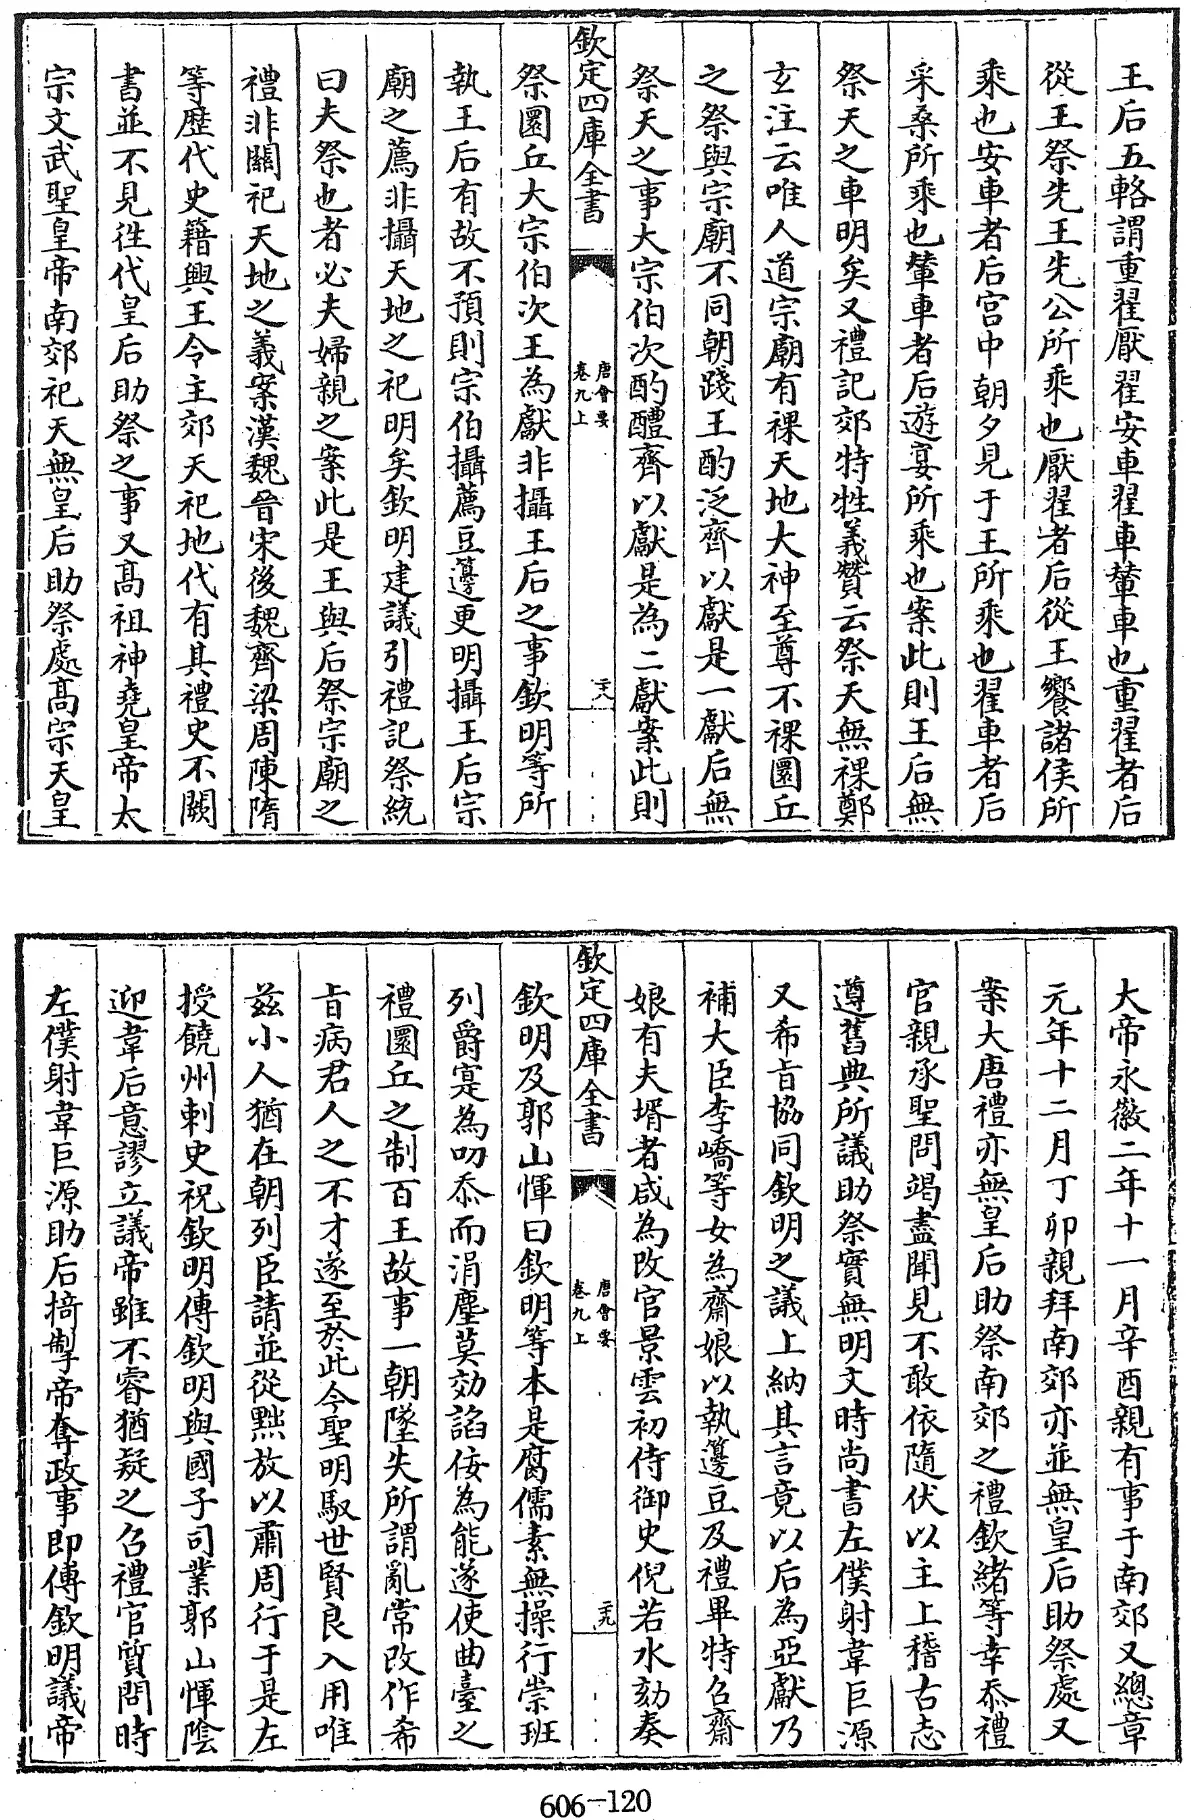 王后五輅謂重翟厭翟安車翟車輦車也重翟者后
從王祭先王先公所乘也厭翟者后從王饗諸侯所
乘也安車者后宫中朝夕見于王所乘也翟車者后
采桑所乘也輦車者后遊宴所乘也案此則王后無
祭天之車明矣又禮記郊特牲義贊云祭天無祼鄭
玄注云唯人道宗廟有祼天地大神至尊不祼圜丘
之祭與宗廟不同朝踐王酌泛齊以獻是一獻后無
祭天之事大宗伯次酌醴齊以獻是為二獻案此則
欽定四庫全書
唐會要
卷九上
二十八
祭圜丘大宗伯次王為獻非攝王后之事欽明等所
執王后有故不預則宗伯攝薦豆籩更明攝王后宗
廟之薦非攝天地之祀明矣欽明建議引禮記祭統
曰夫祭也者必夫婦親之案此是王與后祭宗廟之
禮非關祀天地之義案漢魏晉宋後魏齊梁周陳隋
等歷代史籍興王令主郊天祀地代有其禮史不闕
書並不見徃代皇后助祭之事又髙祖神堯皇帝太
宗文武聖皇帝南郊祀天無皇后助祭處髙宗天皇
大帝永徽二年十一月辛酉親有事于南郊又總章
元年十二月丁卯親拜南郊亦並無皇后助祭處又
案大唐禮亦無皇后助祭南郊之禮欽緒等幸忝禮
官親承聖問竭盡聞見不敢依隨伏以主上稽古志
遵舊典所議助祭實無明文時尚書左僕射韋巨源
又希旨協同欽明之議上納其言竟以后為亞獻乃
補大臣李嶠等女為齋娘以執籩豆及禮畢特召齋
娘有夫壻者咸為改官景雲初侍御史倪若水劾奏
欽定四庫全書
唐會要
卷九上
二十九
欽明及郭山惲曰欽明等本是腐儒素無操行崇班
列爵寔為叨忝而涓塵莫効諂佞為能遂使曲臺之
禮圜丘之制百王故事一朝墜失所謂亂常改作希
旨病君人之不才遂至於此今聖明馭世賢良入用唯
兹小人猶在朝列臣請並從黜放以肅周行于是左
授饒州刺史祝欽明傳欽明與國子司業郭山惲陰
迎韋后意謬立議帝雖不睿猶疑之召禮官質問時
左僕射韋巨源助后掎掣帝奪政事即傅欽明議帝
606-120